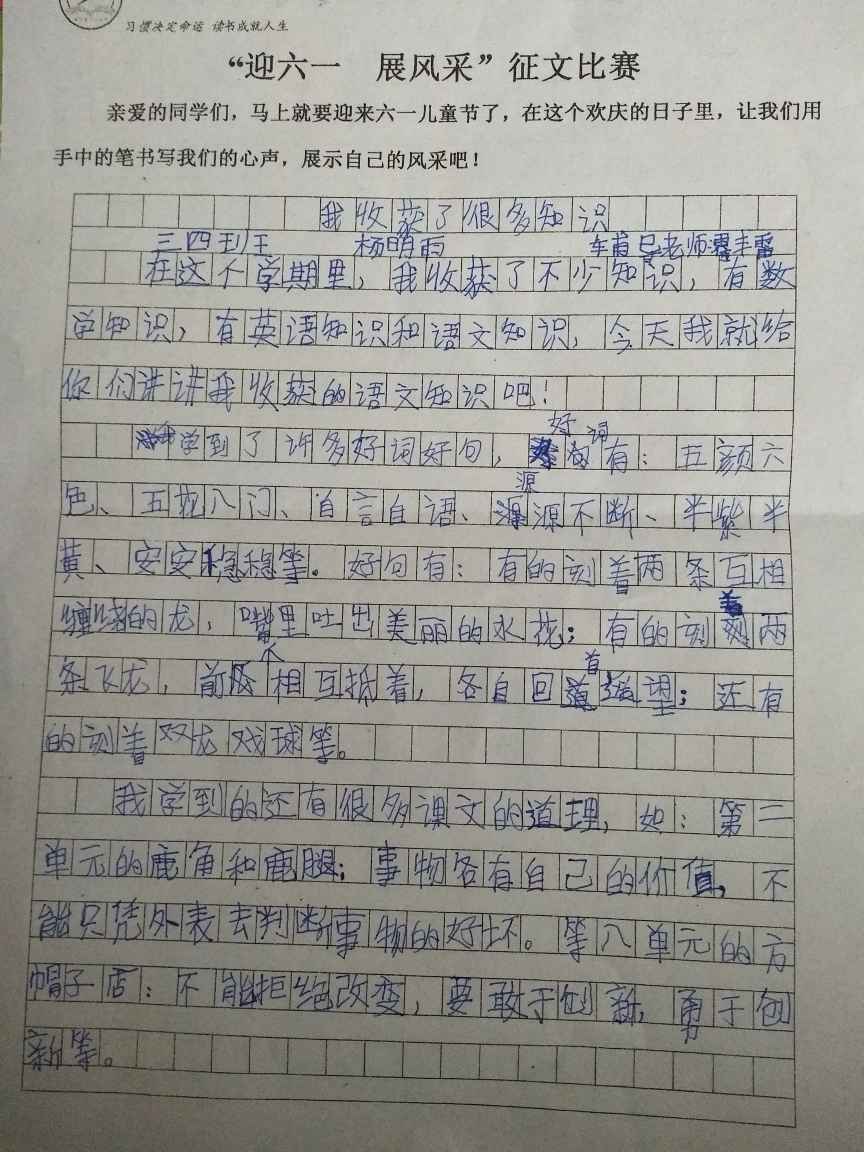 习惯决定命运 读书成就人生
“迎六一 展风采”征文比赛
亲爱的同学们，马上就要迎来六一儿童节了，在这个欢庆的日子里，让我们用
手中的笔书写我们的心声，展示自己的风采吧！
我收获了很多知识
三四班 杨明雨 老师
在这个学期里，我收获了不少知识，有数
学知识，有英语知识和语文知识，今天我就给
你们讲讲我收获的语文知识吧！
学到了许多好词好句，好词有：五颜六
色、五花八门、自言自语、源源不断、半紫半
黄、安安稳稳等。好句有：有的刻着两条互相
缠绕的龙，嘴里吐出美丽的水花；有的刻着两
条飞龙，前爪相互抵着，各自回首遥望；还有
的刻着双龙戏球等。
我学到的还有很多课文的道理，如：第二
单元的鹿角和鹿腿；事物各有自己的价值，不
能只凭外表去判断事物的好坏。第八单元的方
帽子店：不能拒绝改变，要敢于创新，勇于创
新等。